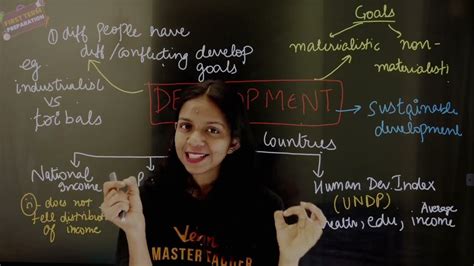 FIRST TERM
PREPARATION
① diff people have
diff/conflicting develop
goals
eg.
industrialist
vs
tribals
Goals
materialistic
non-
materialisti
DEVELOPMENT
Sustainable
development
Countries
National
Income
n - does not
tell distrib
of income
Human Dev. Index
(UNDP)
Average
edu, income
MASTER TEACHER